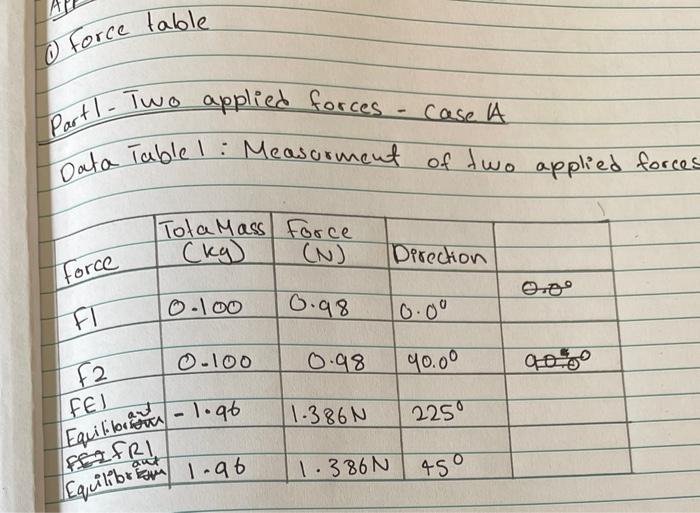 APP
① Force table
Part 1 - Two applied forces - case A
Data Table 1 : Measurment of two applied forces
Force Tota Mass (kg) Force (N) Direction
0.0°
F1 0.100 0.98 0.0°
F2 0.100 0.98 90.0°
FE1 Equilibrant - 1.96 1.386N 225°
FR1 Equilibrant 1.96 1.386N 45°